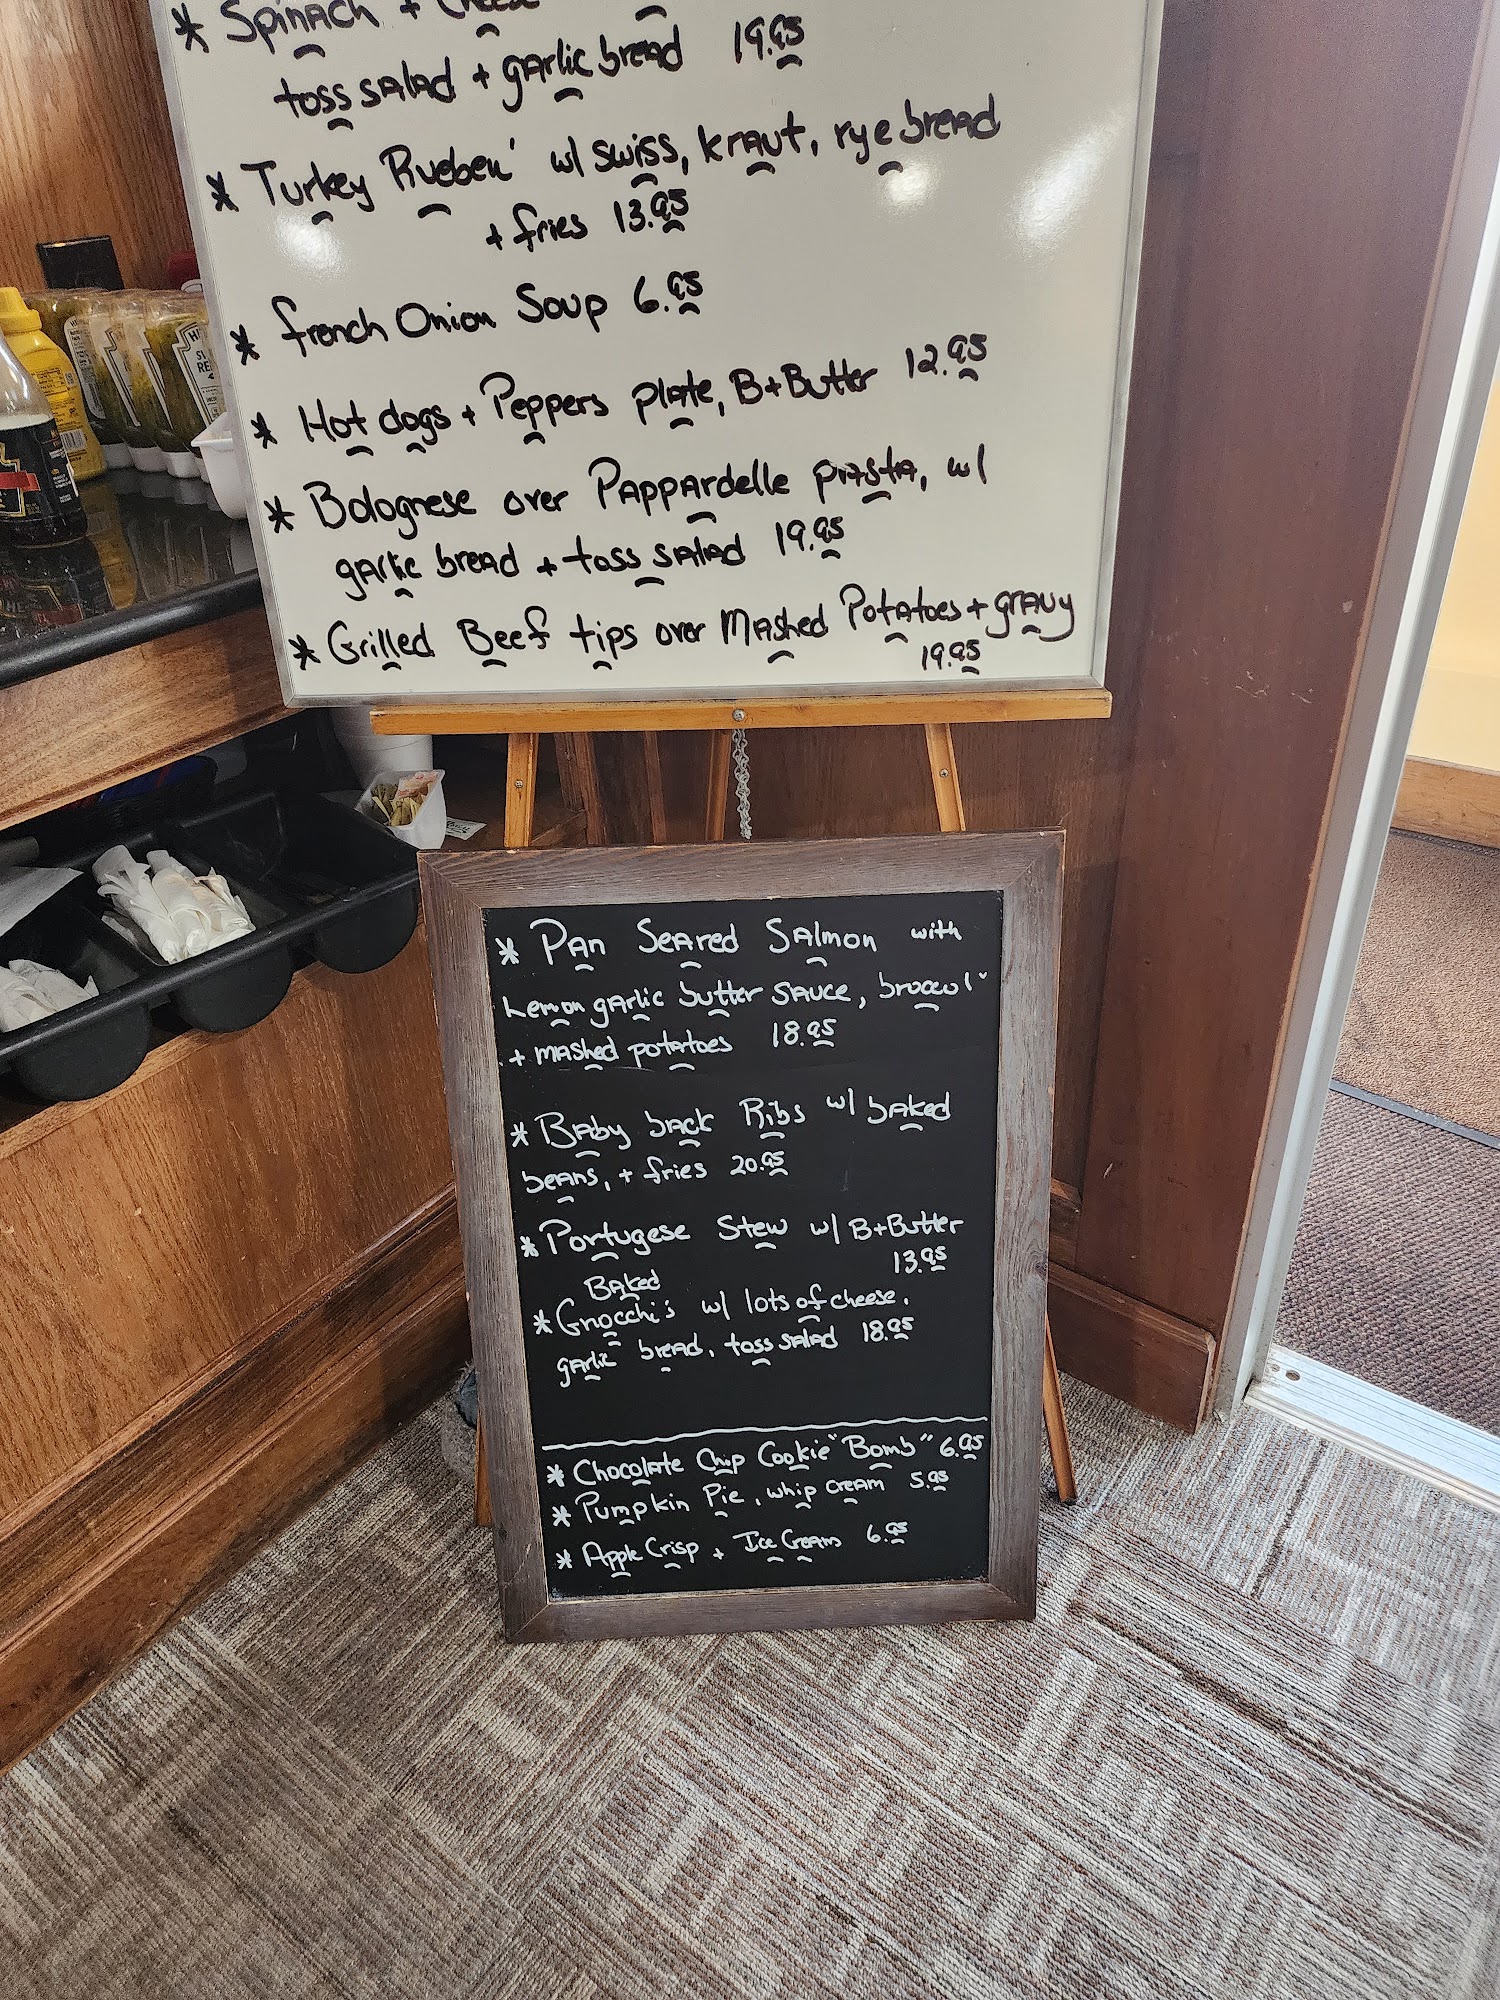 * Spinach + Cheese
toss salad + garlic bread 19.95
* Turkey Rueben' w/ swiss, kraut, rye bread
+ fries 13.95
* french Onion Soup 6.95
* Hot dogs + Peppers plate, B+Butter 12.95
* Bolognese over Pappardelle pasta, w/
garlic bread + toss salad 19.95
* Grilled Beef tips over Mashed Potatoes + gravy
19.95
* Pan Seared Salmon with
Lemon garlic butter sauce, broccoli
+ mashed potatoes 18.95
* Baby back Ribs w/ baked
beans, + fries 20.95
* Portugese Stew w/ B+Butter
13.95
Baked
* Gnocchi's w/ lots of cheese,
garlic bread, toss salad 18.95
* Chocolate Chip Cookie "Bomb" 6.95
* Pumpkin Pie, whip cream 5.95
* Apple Crisp + Ice Cream 6.95